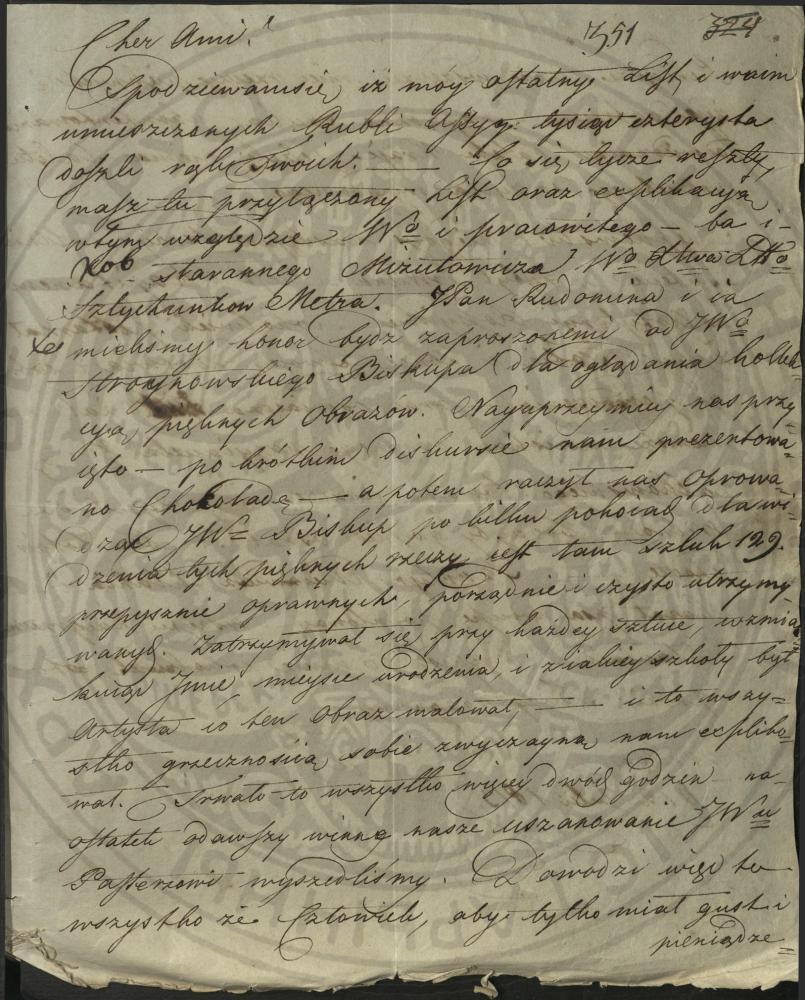 Cher Ami! 351 324
Spodziewam się, iż móy ostatny List, i woim
umieszczonych Rubli Assyg: tysiąc czterysta
doszli rąk Twoich. — Co się tycze reszty,
masz tu przyłączony List oraz explikacyą
wtym względzie Wo i pracowitego — ba i
Kob starannego Mizutowicza Wo
Sztychunkow Metra. JPan Rudomina i ia
mieliśmy honor bydz zaproszonemi od JWo
Stroynowskiego Biskupa dla oglądania kollek-
cyą pięknych Obrazów. Nayuprzeymiey nas przy-
ięto — po krótkim diskursie nam prezentowa-
no Chokoladę — a potem raczył nas oprowa-
dzać JWo Biskup po kilku pokoiach dla wi-
dzenia tych pięknych rzeczy, iest tam sztuk 129.
przepysznie oprawnych, porządnie i czysto utrzymy-
wanych. Zatrzymywał się, przy każdey sztuce, wzmia-
kuiąc Jmie, mieysce urodzenia, i z iakiey szkoły był
Artysta co ten Obraz malował, — i to wszy-
stko grzecznością sobie zwyczayną nam expliko-
wał. Trwało to wszystko więcey dwóch godzin na-
ostatek odawszy winne nasze uszanowanie JWu
Pasterzowi wyszedliśmy. Dowodzi więc to
wszystko że Człowiek, aby tylko miał gust i
pieniądze